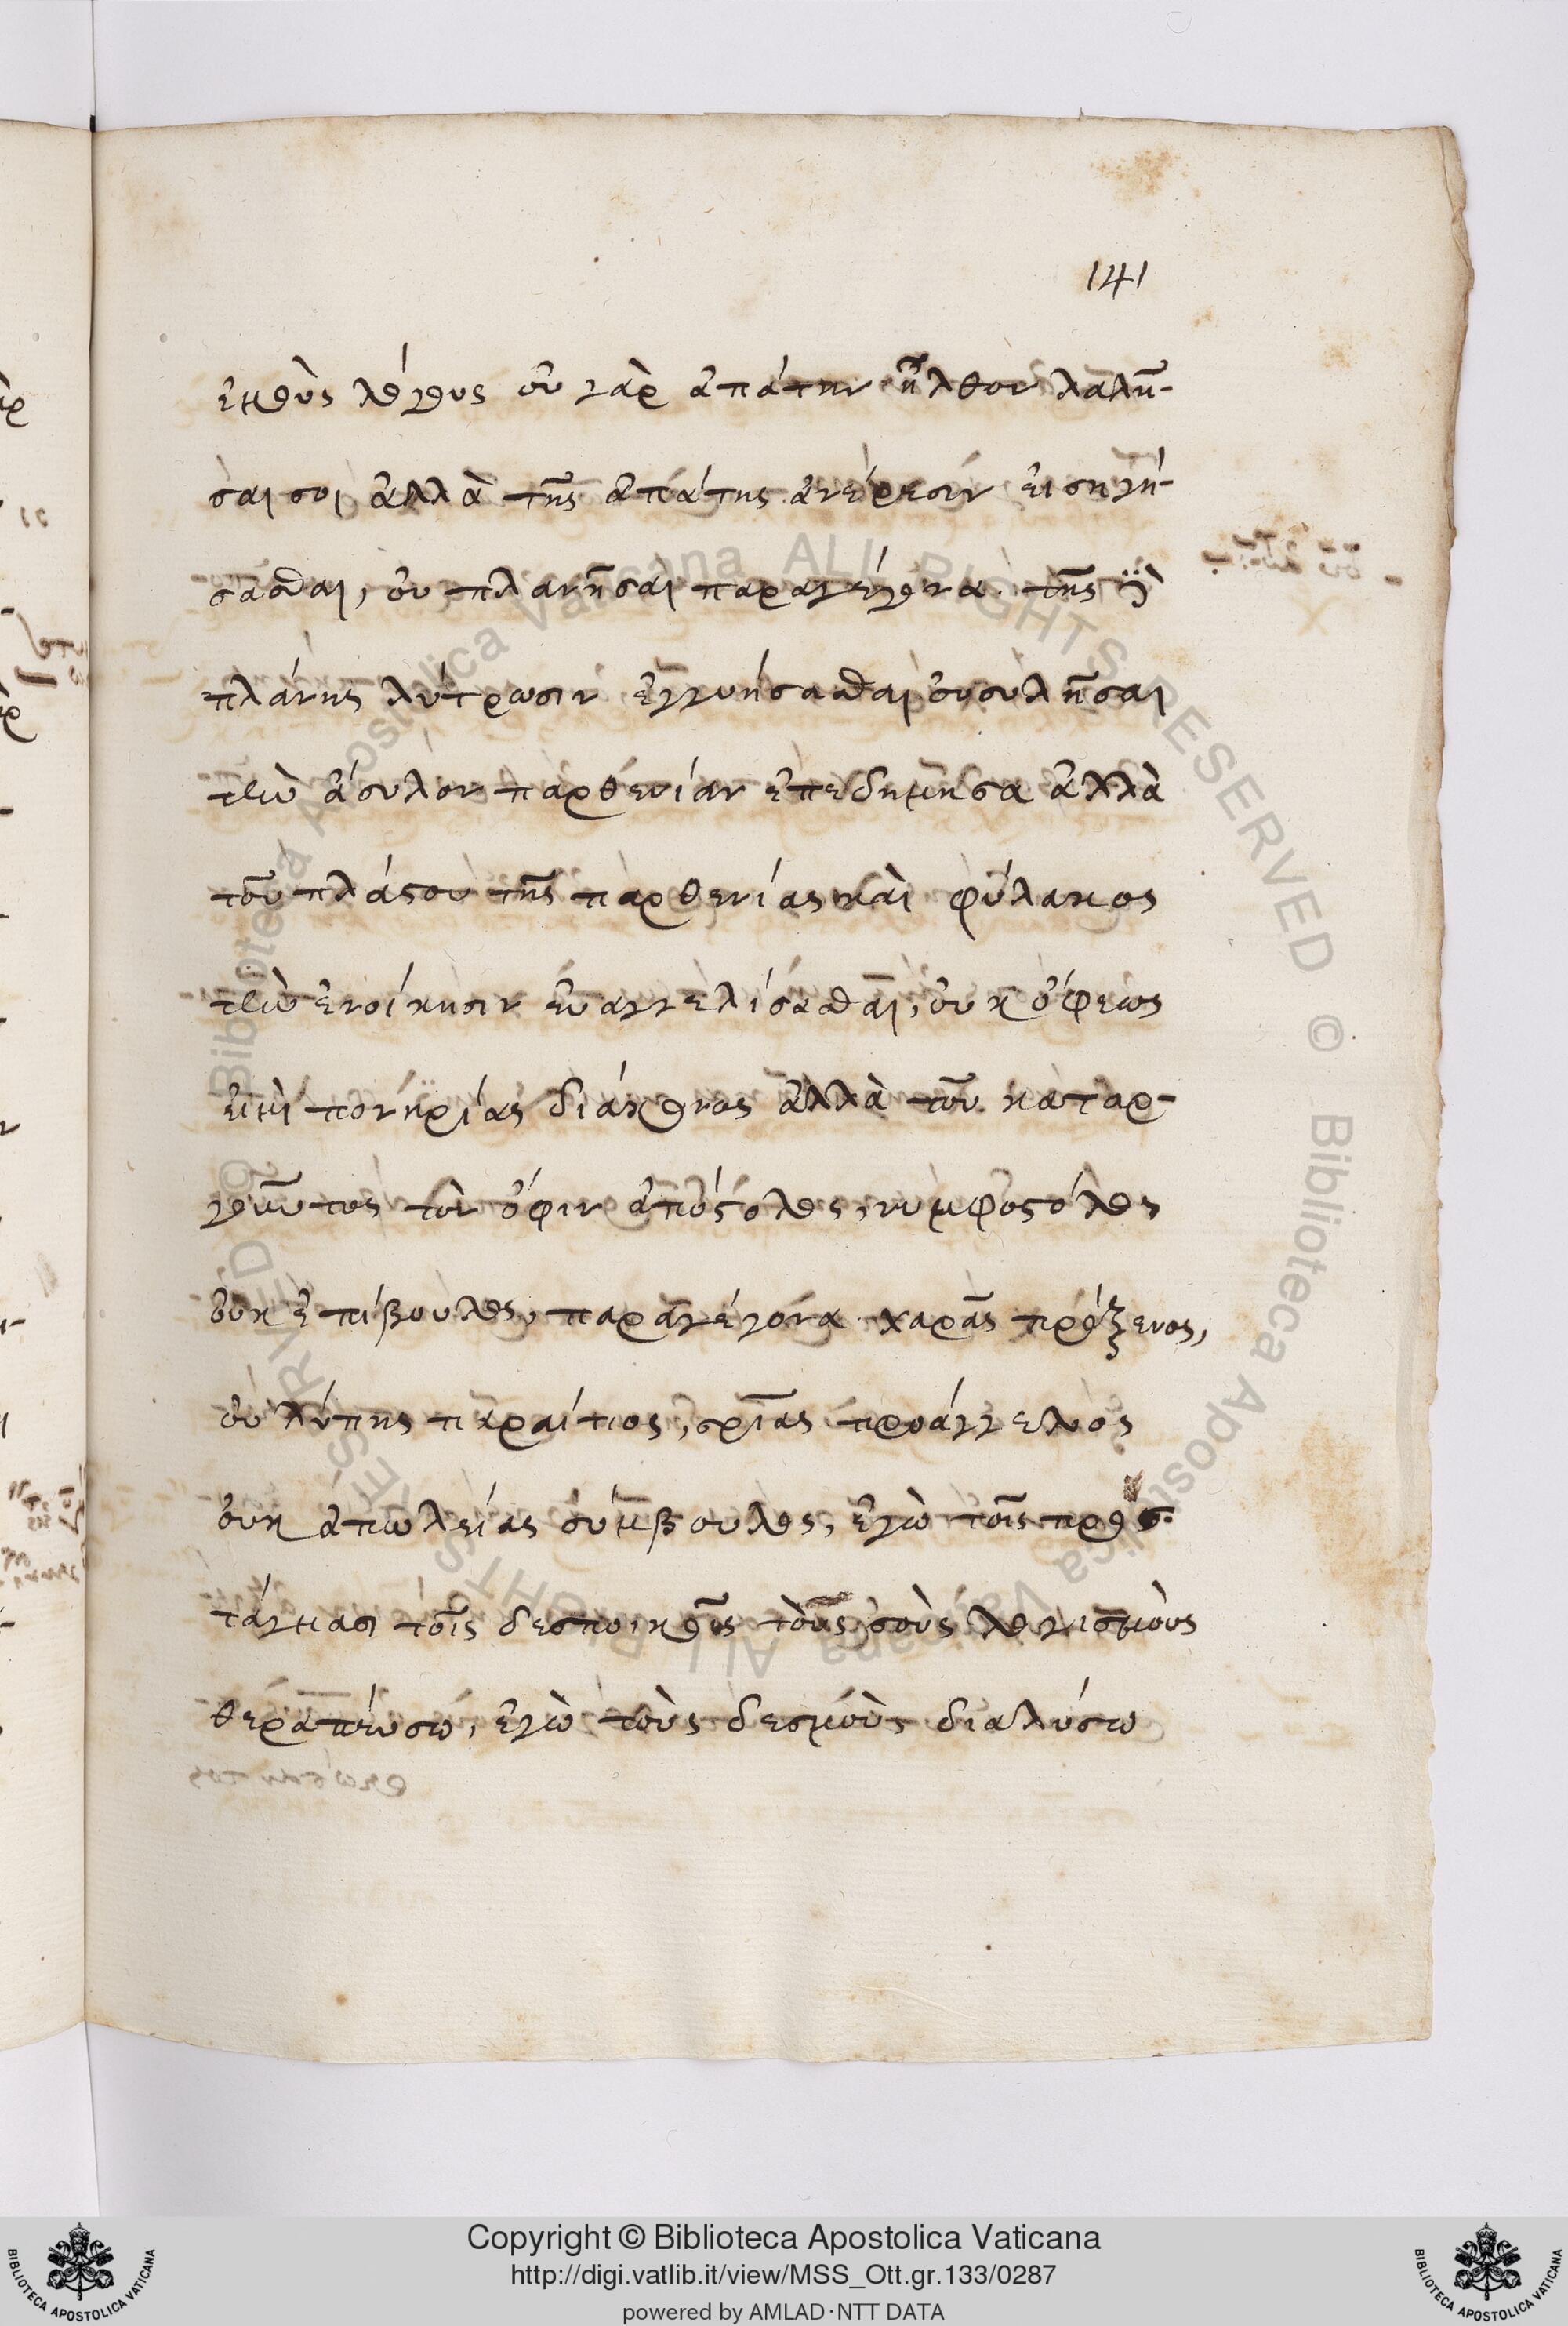 141
ἐμοὺς λόγους οὐ γὰρ ἀπάτην ἦλθον λαλῆ-
σαι σοι ἀλλὰ τῆς ἀπάτης ἀναίρεσιν εἰσηγή-
σασθαι, οὐ πλανῆσαι παραγέγονα τῆς δὲ
πλάνης λύτρωσιν ἐγγυήσασθαι οὐ συλῆσαι
τὴν ἄσυλον παρθενίαν ἐπεδήμησα ἀλλὰ
τοῦ πλάστου τῆς παρθενίας καὶ φύλακος
τὴν ἐνοίκησιν εὐαγγελίσασθαι, οὐκ ὄφεως
εἰμὶ πονηρίας διάκονος ἀλλὰ τοῦ καταρ-
γοῦντος τὸν ὄφιν ἀπόστολος, νυμφοστόλος
οὐκ ἐπίβουλος, παραγέγονα χαρᾶς πρόξενος,
οὐ λύπης παραίτιος, σρίας προάγγελος
οὐκ ἀπωλείας σύμβουλος, ἐγὼ τοῖς προσ
τάγμασι τοῖς δεσποικοῖς τοὺς σοὺς λογισμοὺς
θεραπεύσω, ἐγὼ τοὺς δεσμοὺς διαλύσω
Copyright © Biblioteca Apostolica Vaticana
http://digi.vatlib.it/view/MSS_Ott.gr.133/0287
powered by AMLAD·NTT DATA
BIBLIOTECA APOSTOLICA VATICANA
BIBLIOTECA APOSTOLICA VATICANA